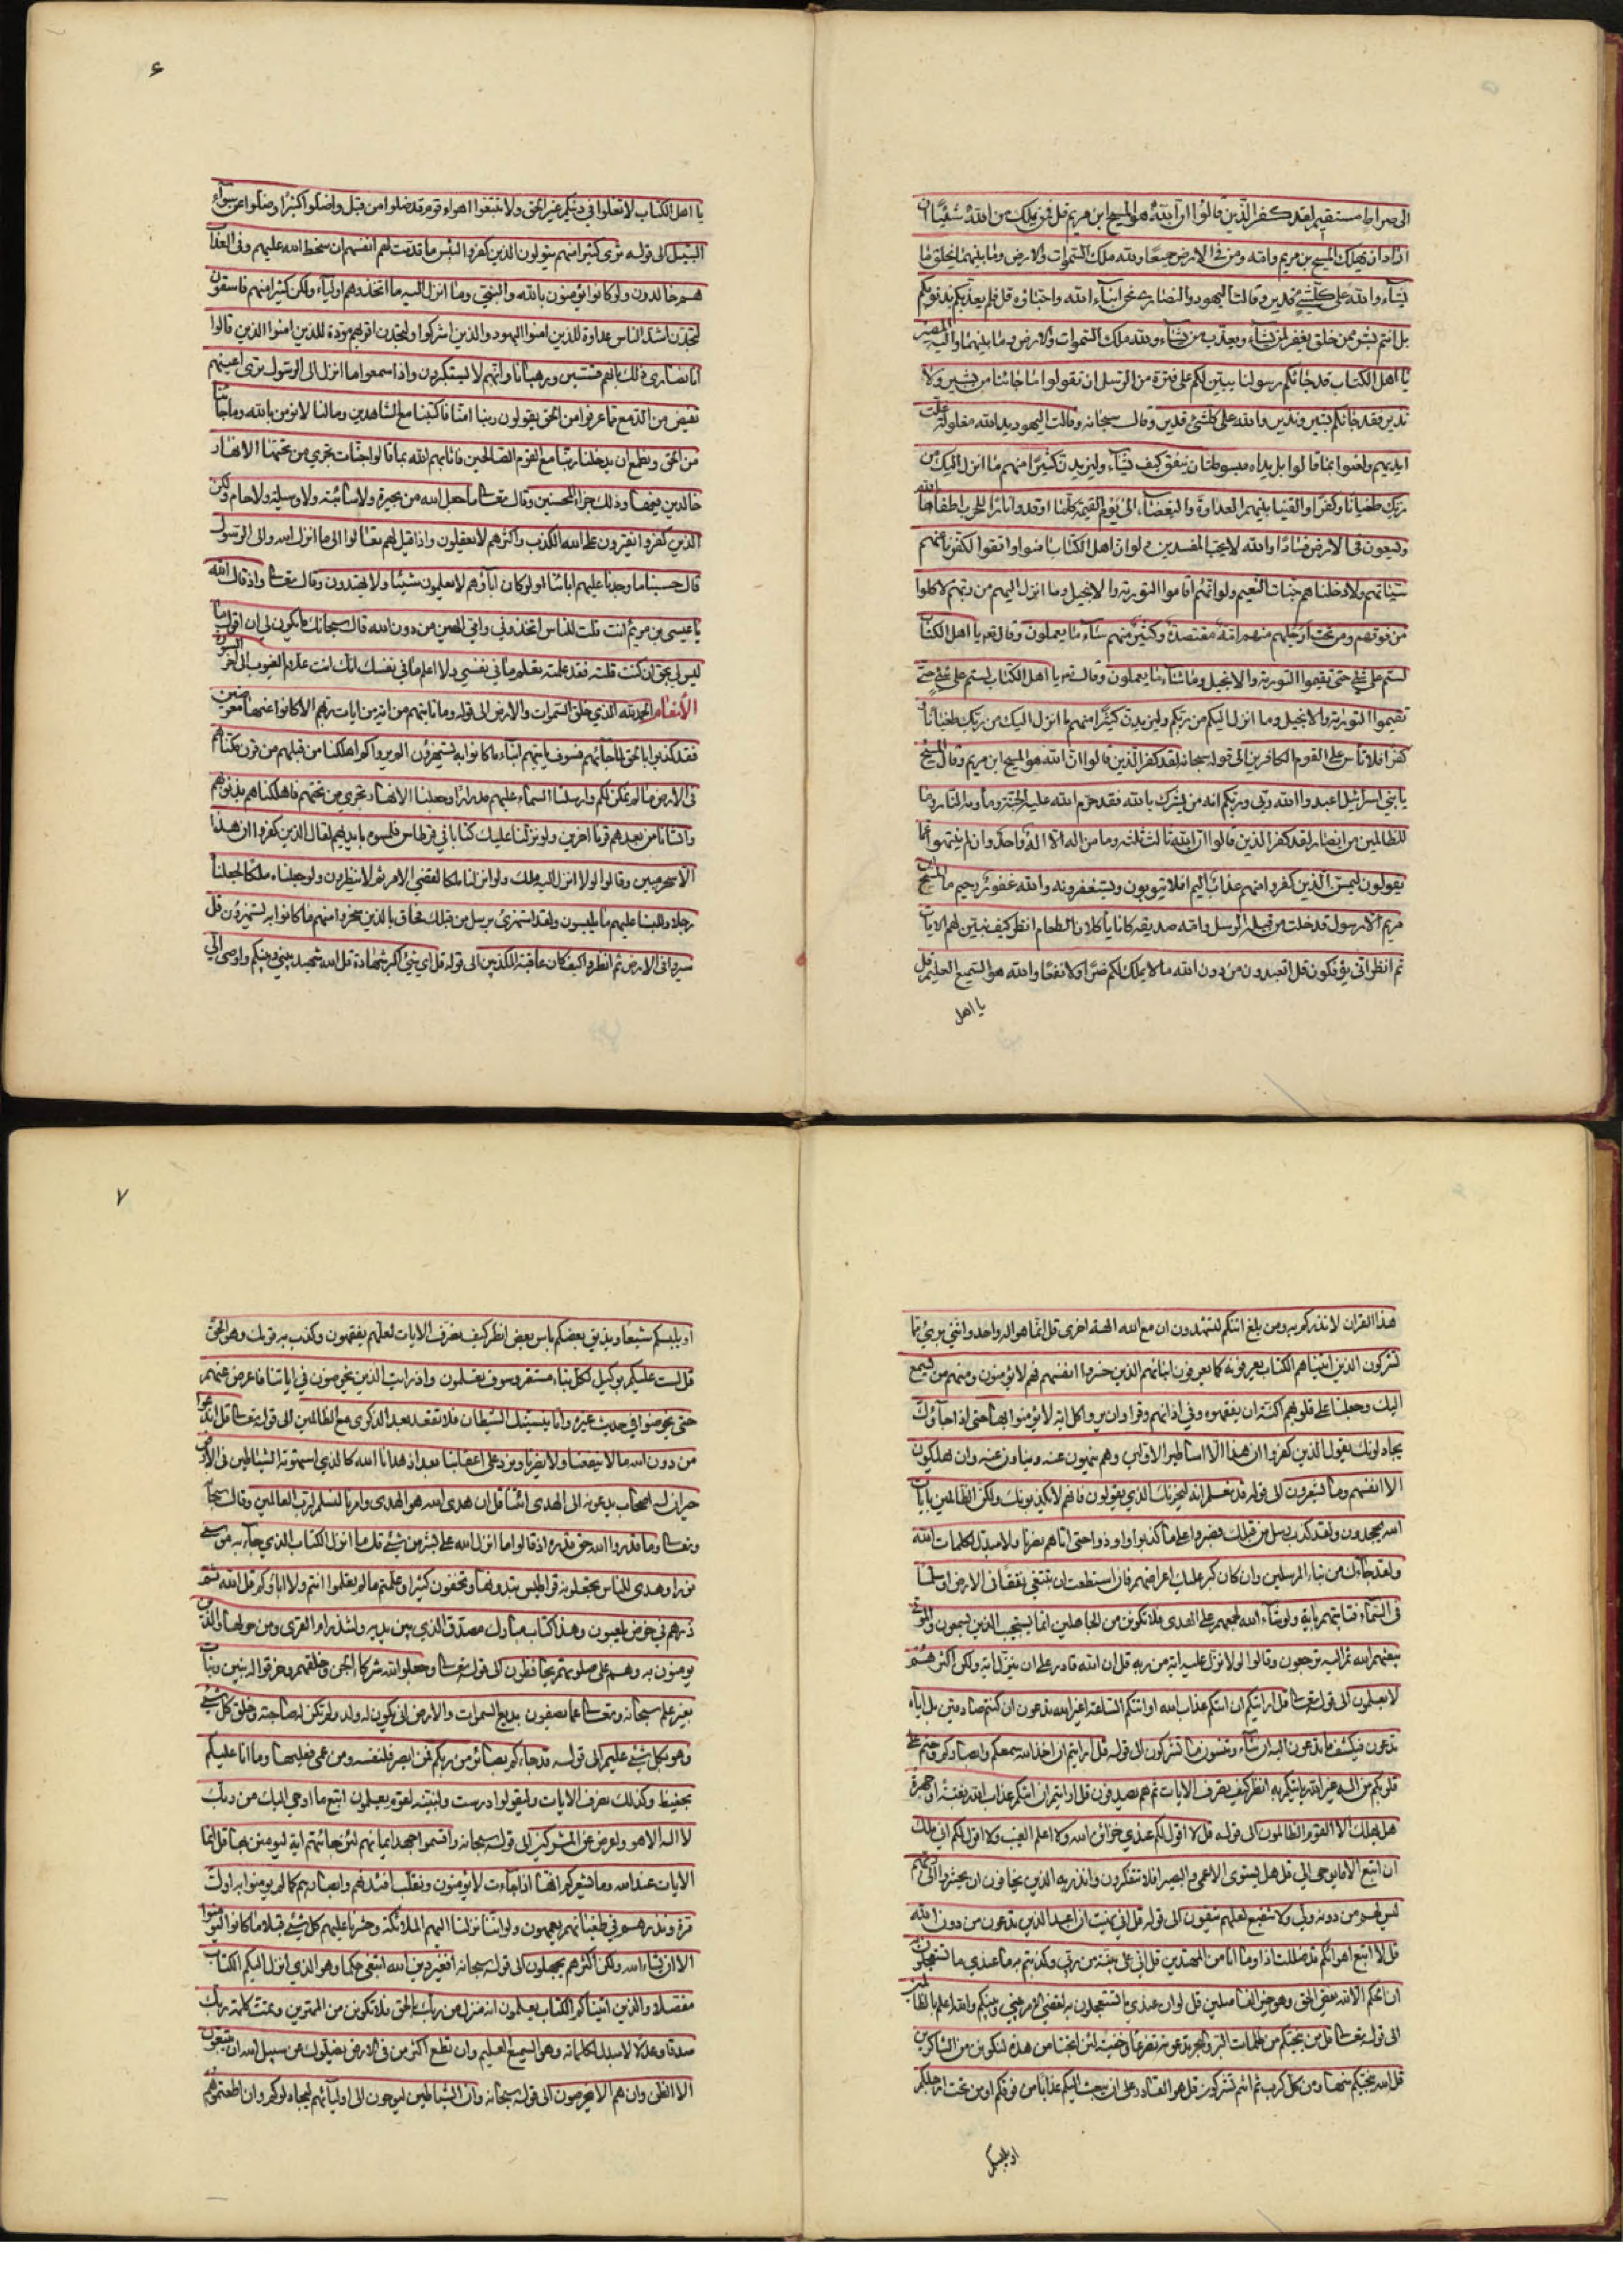 الى صراط مستقيم لقد كفر الذين قالوا ان الله هو المسيح ابن مريم قل فمن يملك من الله شيئا ان
اراد ان يهلك المسيح بن مريم وامه ومن في الارض جميعا ولله ملك السموات والارض وما بينهما يخلق ما
يشاء والله على كل شيء قدير وقالت اليهود والنصارى نحن ابناء الله واحباؤه قل فلم يعذبكم بذنوبكم
بل انتم بشر ممن خلق يغفر لمن يشاء ويعذب من يشاء ولله ملك السموات والارض وما بينهما واليه المصير
يا اهل الكتاب قد جائكم رسولنا يبين لكم على فترة من الرسل ان تقولوا ما جائنا من بشير ولا
نذير فقد جائكم بشير ونذير والله على كل شيء قدير وقال سبحانه وقالت اليهود يد الله مغلولة غلت
ايديهم ولعنوا بما قالوا بل يداه مبسوطتان ينفق كيف يشاء وليزيدن كثيرا منهم ما انزل اليك من
ربك طغيانا وكفرا والقينا بينهم العداوة والبغضاء الى يوم القيمة كلما اوقدوا نارا للحرب اطفاها الله
ويسعون في الارض فسادا والله لا يحب المفسدين ولو ان اهل الكتاب امنوا واتقوا لكفرنا عنهم
سيئاتهم ولادخلناهم جنات النعيم ولو انهم اقاموا التورية والانجيل وما انزل اليهم من ربهم لاكلوا
من فوقهم ومن تحت ارجلهم منهم امة مقتصدة وكثير منهم ساء ما يعملون وقال تعـ يا اهل الكتاب
لستم على شئ حتى تقيموا التورية والانجيل وما ساء ما يعملون وقال تعـ يا اهل الكتاب لستم على شئ حتى
تقيموا التورية والانجيل وما انزل اليكم من ربكم وليزيدن كثيرا منهم ما انزل اليك من ربك طغيانا و
كفرا فلا تأس على القوم الكافرين الى قوله سبحانه لقد كفر الذين قالوا ان الله هو المسيح ابن مريم وقال المسيح
يا بني اسرائيل اعبدوا الله ربي وربكم انه من يشرك بالله فقد حرم الله عليه الجنة ومأويه النار وما
للظالمين من انصار لقد كفر الذين قالوا ان الله ثالث ثلثة وما من اله الا اله واحد وان لم ينتهوا عما
يقولون ليمسن الذين كفروا منهم عذاب اليم افلا يتوبون ويستغفرونه والله غفور رحيم ما المسيح ابن
مريم الا رسول قد خلت من قبله الرسل وامه صديقة كانا يأكلان الطعام انظر كيف نبين لهم الايات
ثم انظر انى يؤفكون قل اتعبدون من دون الله ما لا يملك لكم ضرا ولا نفعا والله هو السميع العليم قل
يا اهل
٦
يا اهل الكتاب لا تغلوا في دينكم غير الحق ولا تتبعوا اهواء قوم قد ضلوا من قبل واضلوا كثيرا وضلوا عن سواء
السبيل الى قوله ترى كثيرا منهم يتولون الذين كفروا لبئس ما قدمت لهم انفسهم ان سخط الله عليهم وفي العذاب
هم خالدون ولو كانوا يؤمنون بالله والنبي وما انزل اليه ما اتخذوهم اولياء ولكن كثيرا منهم فاسقون
لتجدن اشد الناس عداوة للذين امنوا اليهود والذين اشركوا ولتجدن اقربهم مودة للذين امنوا الذين قالوا
انا نصارى ذلك بانهم قسيسين ورهبانا وانهم لا يستكبرون واذا سمعوا ما انزل الى الرسول ترى اعينهم
تفيض من الدمع مما عرفوا من الحق يقولون ربنا امنا فاكتبنا مع الشاهدين وما لنا لا نؤمن بالله وما جاءنا
من الحق ونطمع ان يدخلنا ربنا مع القوم الصالحين فاثابهم الله بما قالوا جنات تجري من تحتها الانهار
خالدين فيها وذلك جزاء المحسنين وقال تعـ ما جعل الله من بحيرة ولا سائبة ولا وصيلة ولا حام ولكن
الذين كفروا يفترون على الله الكذب واكثرهم لا يعقلون واذا قيل لهم تعالوا الى ما انزل الله والى الرسول
قالوا حسبنا ما وجدنا عليهم ابائنا اولو كان اباؤهم لا يعلمون شيئا ولا يهتدون وقال تعـ واذ قال الله
يا عيسى بن مريم انت قلت للناس اتخذوني وامي الهين من دون الله قال سبحانك ما يكون لي ان اقول ما
ليس لي بحق ان كنت قلته فقد علمته تعلم ما في نفسي ولا اعلم ما في نفسك انك انت علام الغيوب الى اخر السورة
الأنعام الحمد لله الذي خلق السموات والارض الى قوله وما تاتيهم من اية من ايات ربهم الا كانوا عنها معرضين
فقد كذبوا بالحق لما جائهم فسوف ياتيهم انباء ما كانوا به يستهزؤن الم يروا كم اهلكنا من قبلهم من قرن مكناهم
في الارض ما لم نمكن لكم وارسلنا السماء عليهم مدرارا وجعلنا الانهار تجري من تحتهم فاهلكناهم بذنوبهم
وانشانا من بعدهم قرنا اخرين ولو نزلنا عليك كتابا في قرطاس فلمسوه بايديهم لقال الذين كفروا ان هذا
الا سحر مبين وقالوا لولا انزل اليه ملك ولو انزلنا ملكا لقضي الامر ثم لا ينظرون ولو جعلناه ملكا لجعلناه
رجلا وللبسنا عليهم ما يلبسون ولقد استهزئ برسل من قبلك فحاق بالذين سخروا منهم ما كانوا به يستهزؤن قل
سيروا في الارض ثم انظروا كيف كان عاقبة المكذبين الى قوله قل اي شئ اكبر شهادة قل الله شهيد بيني وبينكم واوحي الي
هذا القران لانذركم به ومن بلغ ائنكم لتشهدون ان مع الله الهة اخرى قل انما هو اله واحد وانني برئ مما
تشركون الذين اتيناهم الكتاب يعرفونه كما يعرفون ابنائهم الذين خسروا انفسهم فهم لا يؤمنون ومنهم من يستمع
اليك وجعلنا على قلوبهم اكنة ان يفقهوه وفي اذانهم وقرا وان يروا كل اية لا يؤمنوا بها حتى اذا جاؤك
يجادلونك يقول الذين كفروا ان هذا الا اساطير الاولين وهم ينهون عنه وينأون عنه وان يهلكون
الا انفسهم وما يشعرون الى قوله قد نعلم انه ليحزنك الذي يقولون فانهم لا يكذبونك ولكن الظالمين بايات
الله يجحدون ولقد كذبت رسل من قبلك فصبروا على ما كذبوا واوذوا حتى اتاهم نصرنا ولا مبدل لكلمات الله
ولقد جاءك من نباء المرسلين وان كان كبر عليك اعراضهم فان استطعت ان تبتغي نفقا في الارض او سلما
في السماء فتاتيهم باية ولو شاء الله لجمعهم على الهدى فلا تكونن من الجاهلين انما يستجيب الذين يسمعون والموتى
يبعثهم الله ثم اليه ترجعون وقالوا لولا نزل عليه اية من ربه قل ان الله قادر على ان ينزل اية ولكن اكثرهم
لا يعلمون الى قوله تعـ قل ارايتكم ان اتيكم عذاب الله او اتتكم الساعة اغير الله تدعون ان كنتم صادقين بل اياه
تدعون فيكشف ما تدعون اليه ان شاء وتنسون ما تشركون الى قوله قل ارايتم ان اخذ الله سمعكم وابصاركم وختم على
قلوبكم من اله غير الله ياتيكم به انظر كيف نصرف الايات ثم هم يصدفون قل ارايتم ان اتيكم عذاب الله بغتة او جهرة
هل يهلك الا القوم الظالمون الى قوله قل لا اقول لكم عندي خزائن الله ولا اعلم الغيب ولا اقول لكم اني ملك
ان اتبع الا ما يوحى الي قل هل يستوي الاعمى والبصير افلا تتفكرون وانذر به الذين يخافون ان يحشروا الى ربهم
ليس لهم من دونه ولي ولا شفيع لعلهم يتقون الى قوله قل اني نهيت ان اعبد الذين تدعون من دون الله
قل لا اتبع اهوائكم قد ضللت اذا وما انا من المهتدين قل اني على بينة من ربي وكذبتم به ما عندي ما تستعجلون
ان الحكم الا لله يقص الحق وهو خير الفاصلين قل لو ان عندي ما تستعجلون به لقضي الامر بيني وبينكم والله اعلم بالظالمين
الى قوله تعـ قل من ينجيكم من ظلمات البر والبحر تدعونه تضرعا وخفية لئن انجينا من هذه لنكونن من الشاكرين
قل الله ينجيكم منها ومن كل كرب ثم انتم تشركون قل هو القادر على ان يبعث عليكم عذابا من فوقكم او من تحت ارجلكم
او يلبسكم
٧
او يلبسكم شيعا ويذيق بعضكم باس بعض انظر كيف نصرف الايات لعلهم يفقهون وكذب به قومك وهو الحق
قل لست عليكم بوكيل لكل نباء مستقر وسوف تعلمون واذا رايت الذين يخوضون في اياتنا فاعرض عنهم
حتى يخوضوا في حديث غيره واما ينسينك الشيطان فلا تقعد بعد الذكرى مع الظالمين الى قوله تعـ قل اندعوا
من دون الله ما لا ينفعنا ولا يضرنا ونرد على اعقابنا بعد اذ هدانا الله كالذي استهوته الشياطين في الارض
حيران له اصحاب يدعونه الى الهدى ائتنا قل ان هدى الله هو الهدى وامرنا لنسلم لرب العالمين وقال سبحانه
وتعـ وما قدروا الله حق قدره اذ قالوا ما انزل الله على بشر من شئ قل من انزل الكتاب الذي جاء به موسى
نورا وهدى للناس تجعلونه قراطيس تبدونها وتخفون كثيرا وعلمتم ما لم تعلموا انتم ولا اباؤكم قل الله ثم
ذرهم في خوضهم يلعبون وهذا كتاب مبارك مصدق الذي بين يديه ولتنذر ام القرى ومن حولها والذين
يومنون به وهم على صلوتهم يحافظون الى قوله تعـ وجعلوا لله شركاء الجن وخلقهم وخرقوا له بنين وبنات
بغير علم سبحانه وتعـ عما يصفون بديع السموات والارض انى يكون له ولد ولم تكن له صاحبة وخلق كل شئ
وهو بكل شئ عليم الى قوله قد جاءكم بصائر من ربكم فمن ابصر فلنفسه ومن عمي فعليها وما انا عليكم
بحفيظ وكذلك نصرف الايات وليقولوا درست ولنبينه لقوم يعلمون اتبع ما اوحي اليك من ربك
لا اله الا هو واعرض عن المشركين الى قوله سبحانه واقسموا بالله جهد ايمانهم لئن جائتهم اية ليومنن بها قل انما
الايات عند الله وما يشعركم انها اذا جاءت لا يؤمنون ونقلب افئدتهم وابصارهم كما لم يومنوا به اول
مرة ونذرهم في طغيانهم يعمهون ولو اننا نزلنا اليهم الملائكة وحشرنا عليهم كل شئ قبلا ما كانوا ليومنوا
الا ان يشاء الله ولكن اكثرهم يجهلون الى قوله سبحانه افغير الله ابتغي حكما وهو الذي انزل اليكم الكتاب
مفصلا والذين اتيناهم الكتاب يعلمون انه منزل من ربك بالحق فلا تكونن من الممترين وتمت كلمة ربك
صدقا وعدلا لا مبدل لكلماته وهو السميع العليم وان تطع اكثر من في الارض يضلوك عن سبيل الله ان يتبعون
الا الظن وان هم الا يخرصون الى قوله سبحانه وان الشياطين ليوحون الى اوليائهم ليجادلوكم وان اطعتموهم